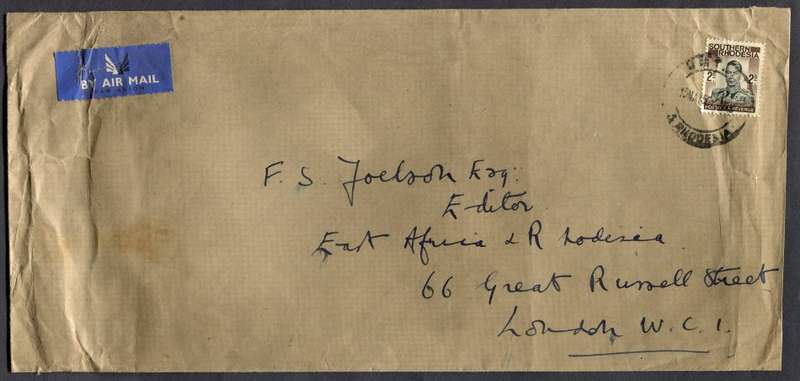 BY AIR MAIL
PAR AVION
SOUTHERN
RHODESIA
2s 2s
UMT
S. RHODESIA
F. S. Joelson Esq:
Editor
East Africa & Rhodesia
66 Great Russell Street
London W.C.1.